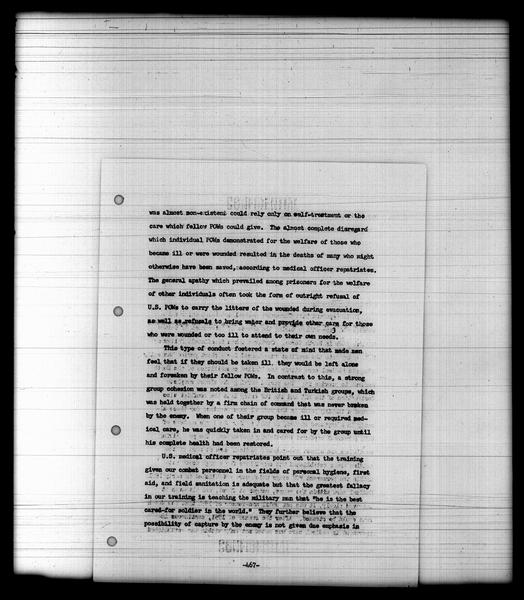 was almost non-existent could rely only on self-treatment or the
care which fellow POWs could give. The almost complete disregard
which individual POWs demonstrated for the welfare of those who
became ill or were wounded resulted in the deaths of many who might
otherwise have been saved, according to medical officer repatriates.
The general apathy which prevailed among prisoners for the welfare
of other individuals often took the form of outright refusal of
U.S. POWs to carry the litters of the wounded during evacuation,
as well as refusals to bring water and provide other care for those
who were wounded or too ill to attend to their own needs.
This type of conduct fostered a state of mind that made men
feel that if they should be taken ill they would be left alone
and forsaken by their fellow POWs. In contrast to this, a strong
group cohesion was noted among the British and Turkish groups, which
was held together by a firm chain of command that was never broken
by the enemy. When one of their group became ill or required med-
ical care, he was quickly taken in and cared for by the group until
his complete health had been restored.
U.S. medical officer repatriates point out that the training
given our combat personnel in the fields of personal hygiene, first
aid, and field sanitation is adequate but that the greatest fallacy
in our training is teaching the military man that "he is the best
cared-for soldier in the world." They further believe that the
possibility of capture by the enemy is not given due emphasis in
-467-